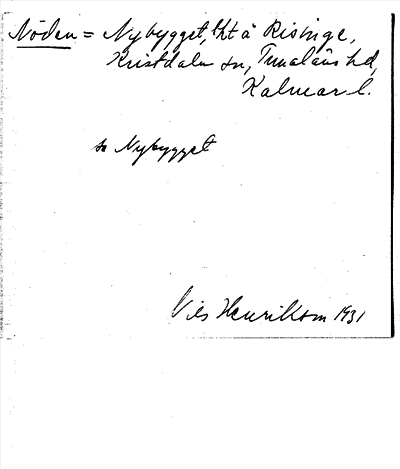 Nöden = Nybygget, lht å Risinge,
Kristdala sn, Tunaläns hd,
Kalmar l.
se Nybygget
Nils Henrikson 1931